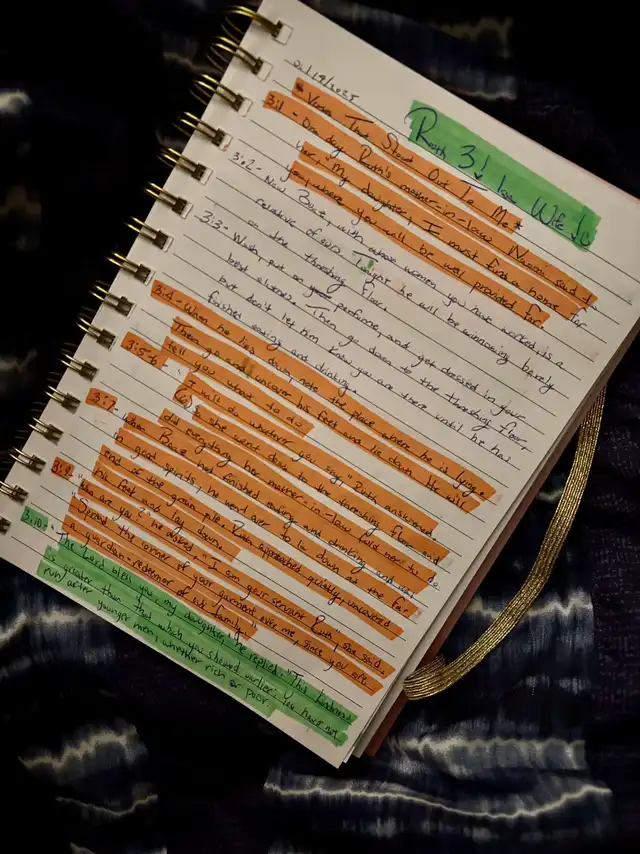 01/19/2025
Ruth 3! Love Wife Jo
* Verses That Stood Out To Me *
3:1 - One day Ruth's mother-in-law Naomi said to
her, "My daughter, I must find a home for
you, where you will be well provided for.
3:2 - Now Boaz, with whose women you have worked, is a
relative of ours. Tonight he will be winnowing barely
on the threshing floor.
3:3 - Wash, put on perfume, and get dressed in your
best clothes. Then go down to the threshing floor,
but don't let him know you are there until he has
finished eating and drinking.
3:4 - When he lies down, note the place where he is lying.
Then go and uncover his feet and lie down. He will
tell you what to do.
3:5-6 - "I will do whatever you say," Ruth answered.
So she went down to the threshing floor and
did everything her mother-in-law told her to do.
3:7 - When Boaz had finished eating and drinking and was
in good spirits, he went over to lie down at the far
end of the grain pile. Ruth approached quietly, uncovered
his feet and lay down.
3:9 - "Who are you?" he asked. "I am your servant Ruth," she said.
"Spread the corner of your garment over me, since you are
a guardian-redeemer of our family."
3:10 - "The Lord bless you, my daughter," he replied. "This kindness
is greater than that which you showed earlier: You have not
run after younger men, whether rich or poor.